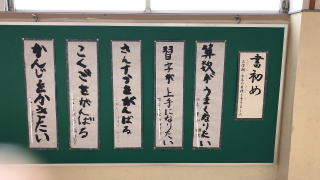 書初め
算数がうまくなりたい
習字が上手になりたい
さんすうをがんばる
こくごをがんばる
かんじをかきたい